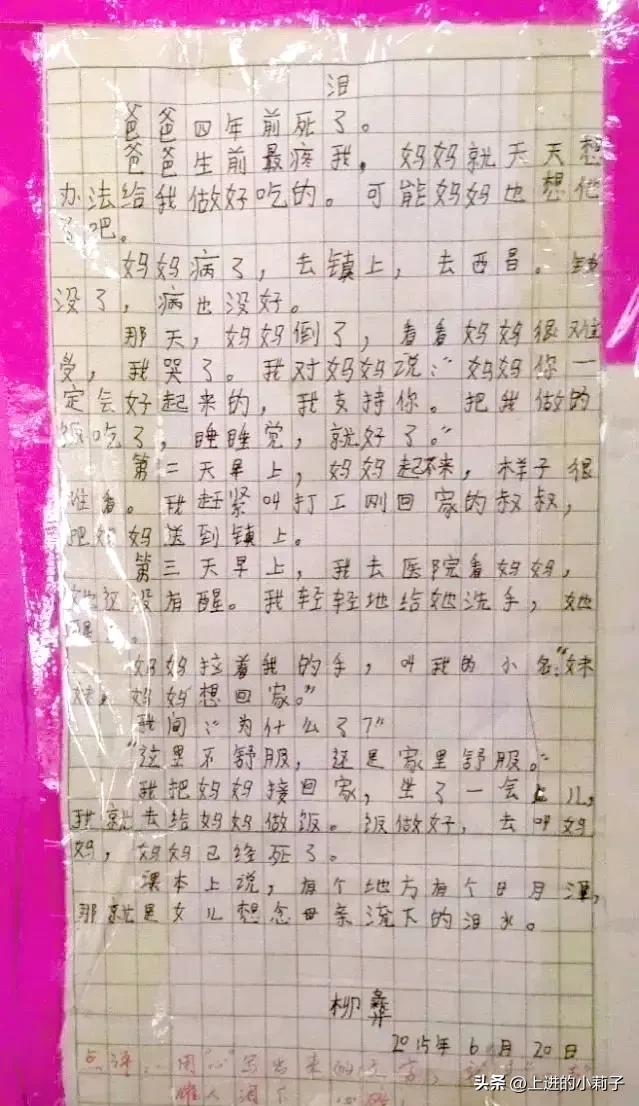 泪
爸爸四年前死了。
爸爸生前最疼我，妈妈就天天想
办法给我做好吃的。可能妈妈也想他
了吧。
妈妈病了，去镇上，去西昌。钱
没了，病也没好。
那天，妈妈倒了，看看妈妈很难
受，我哭了。我对妈妈说：“妈妈你一
定会好起来的，我支持你。把我做的
饭吃了，睡睡觉，就好了。”
第二天早上，妈妈起不来，样子很
难看。我赶紧叫打工刚回家的叔叔，
把妈妈送到镇上。
第三天早上，我去医院看妈妈，
她还没有醒。我轻轻地给她洗手，她
醒了。
妈妈拉着我的手，叫我的小名：“妹
妹，妈妈想回家。”
我问：“为什么了？”
“这里不舒服，还是家里舒服。”
我把妈妈接回家，坐了一会儿，
我就去给妈妈做饭。饭做好，去叫妈
妈，妈妈已经死了。
课本上说，有个地方有个日月潭，
那就是女儿想念母亲流下的泪水。
柳彝
2015年6月20日
用“心”写出来的文字，
催人泪下
头条 @上进的小莉子